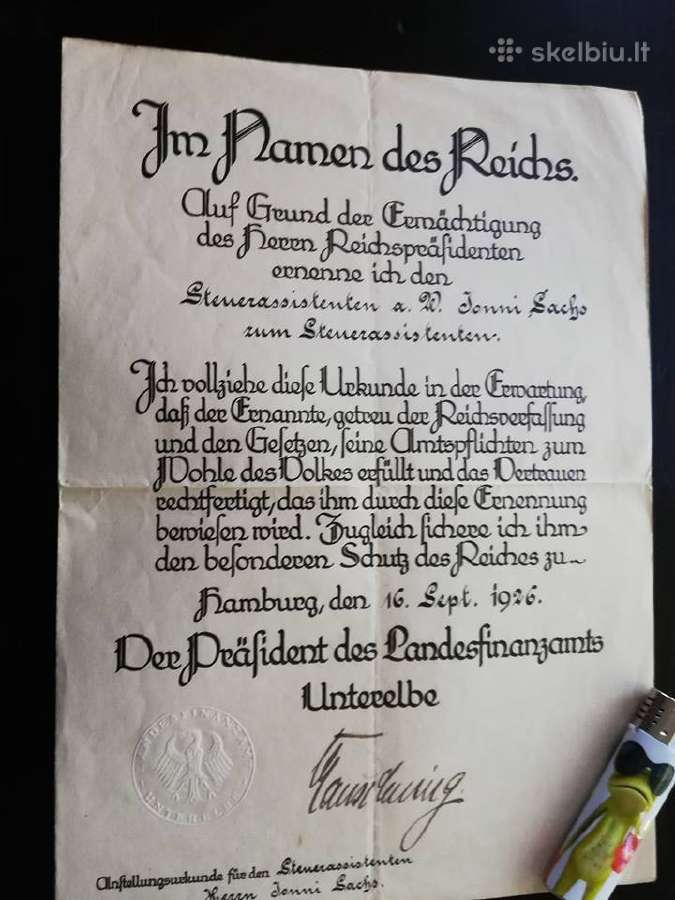 skelbiu.lt
Im Namen des Reichs.
Auf Grund der Ermächtigung
des Herrn Reichspräsidenten
ernenne ich den
Steuerassistenten a. W. Jonni Sachs
zum Steuerassistenten.
Ich vollziehe diese Urkunde in der Erwartung,
daß der Ernannte, getreu der Reichsverfassung
und den Gesetzen, seine Amtspflichten zum
Wohle des Volkes erfüllt und das Vertrauen
rechtfertigt, das ihm durch diese Ernennung
bewiesen wird. Zugleich sichere ich ihm
den besonderen Schutz des Reiches zu.
Hamburg, den 16. Sept. 1926.
Der Präsident des Landesfinanzamts
Unterelbe
LANDESFINANZAMT
UNTERELBE
Anstellungsurkunde für den Steuerassistenten
Herrn Jonni Sachs.